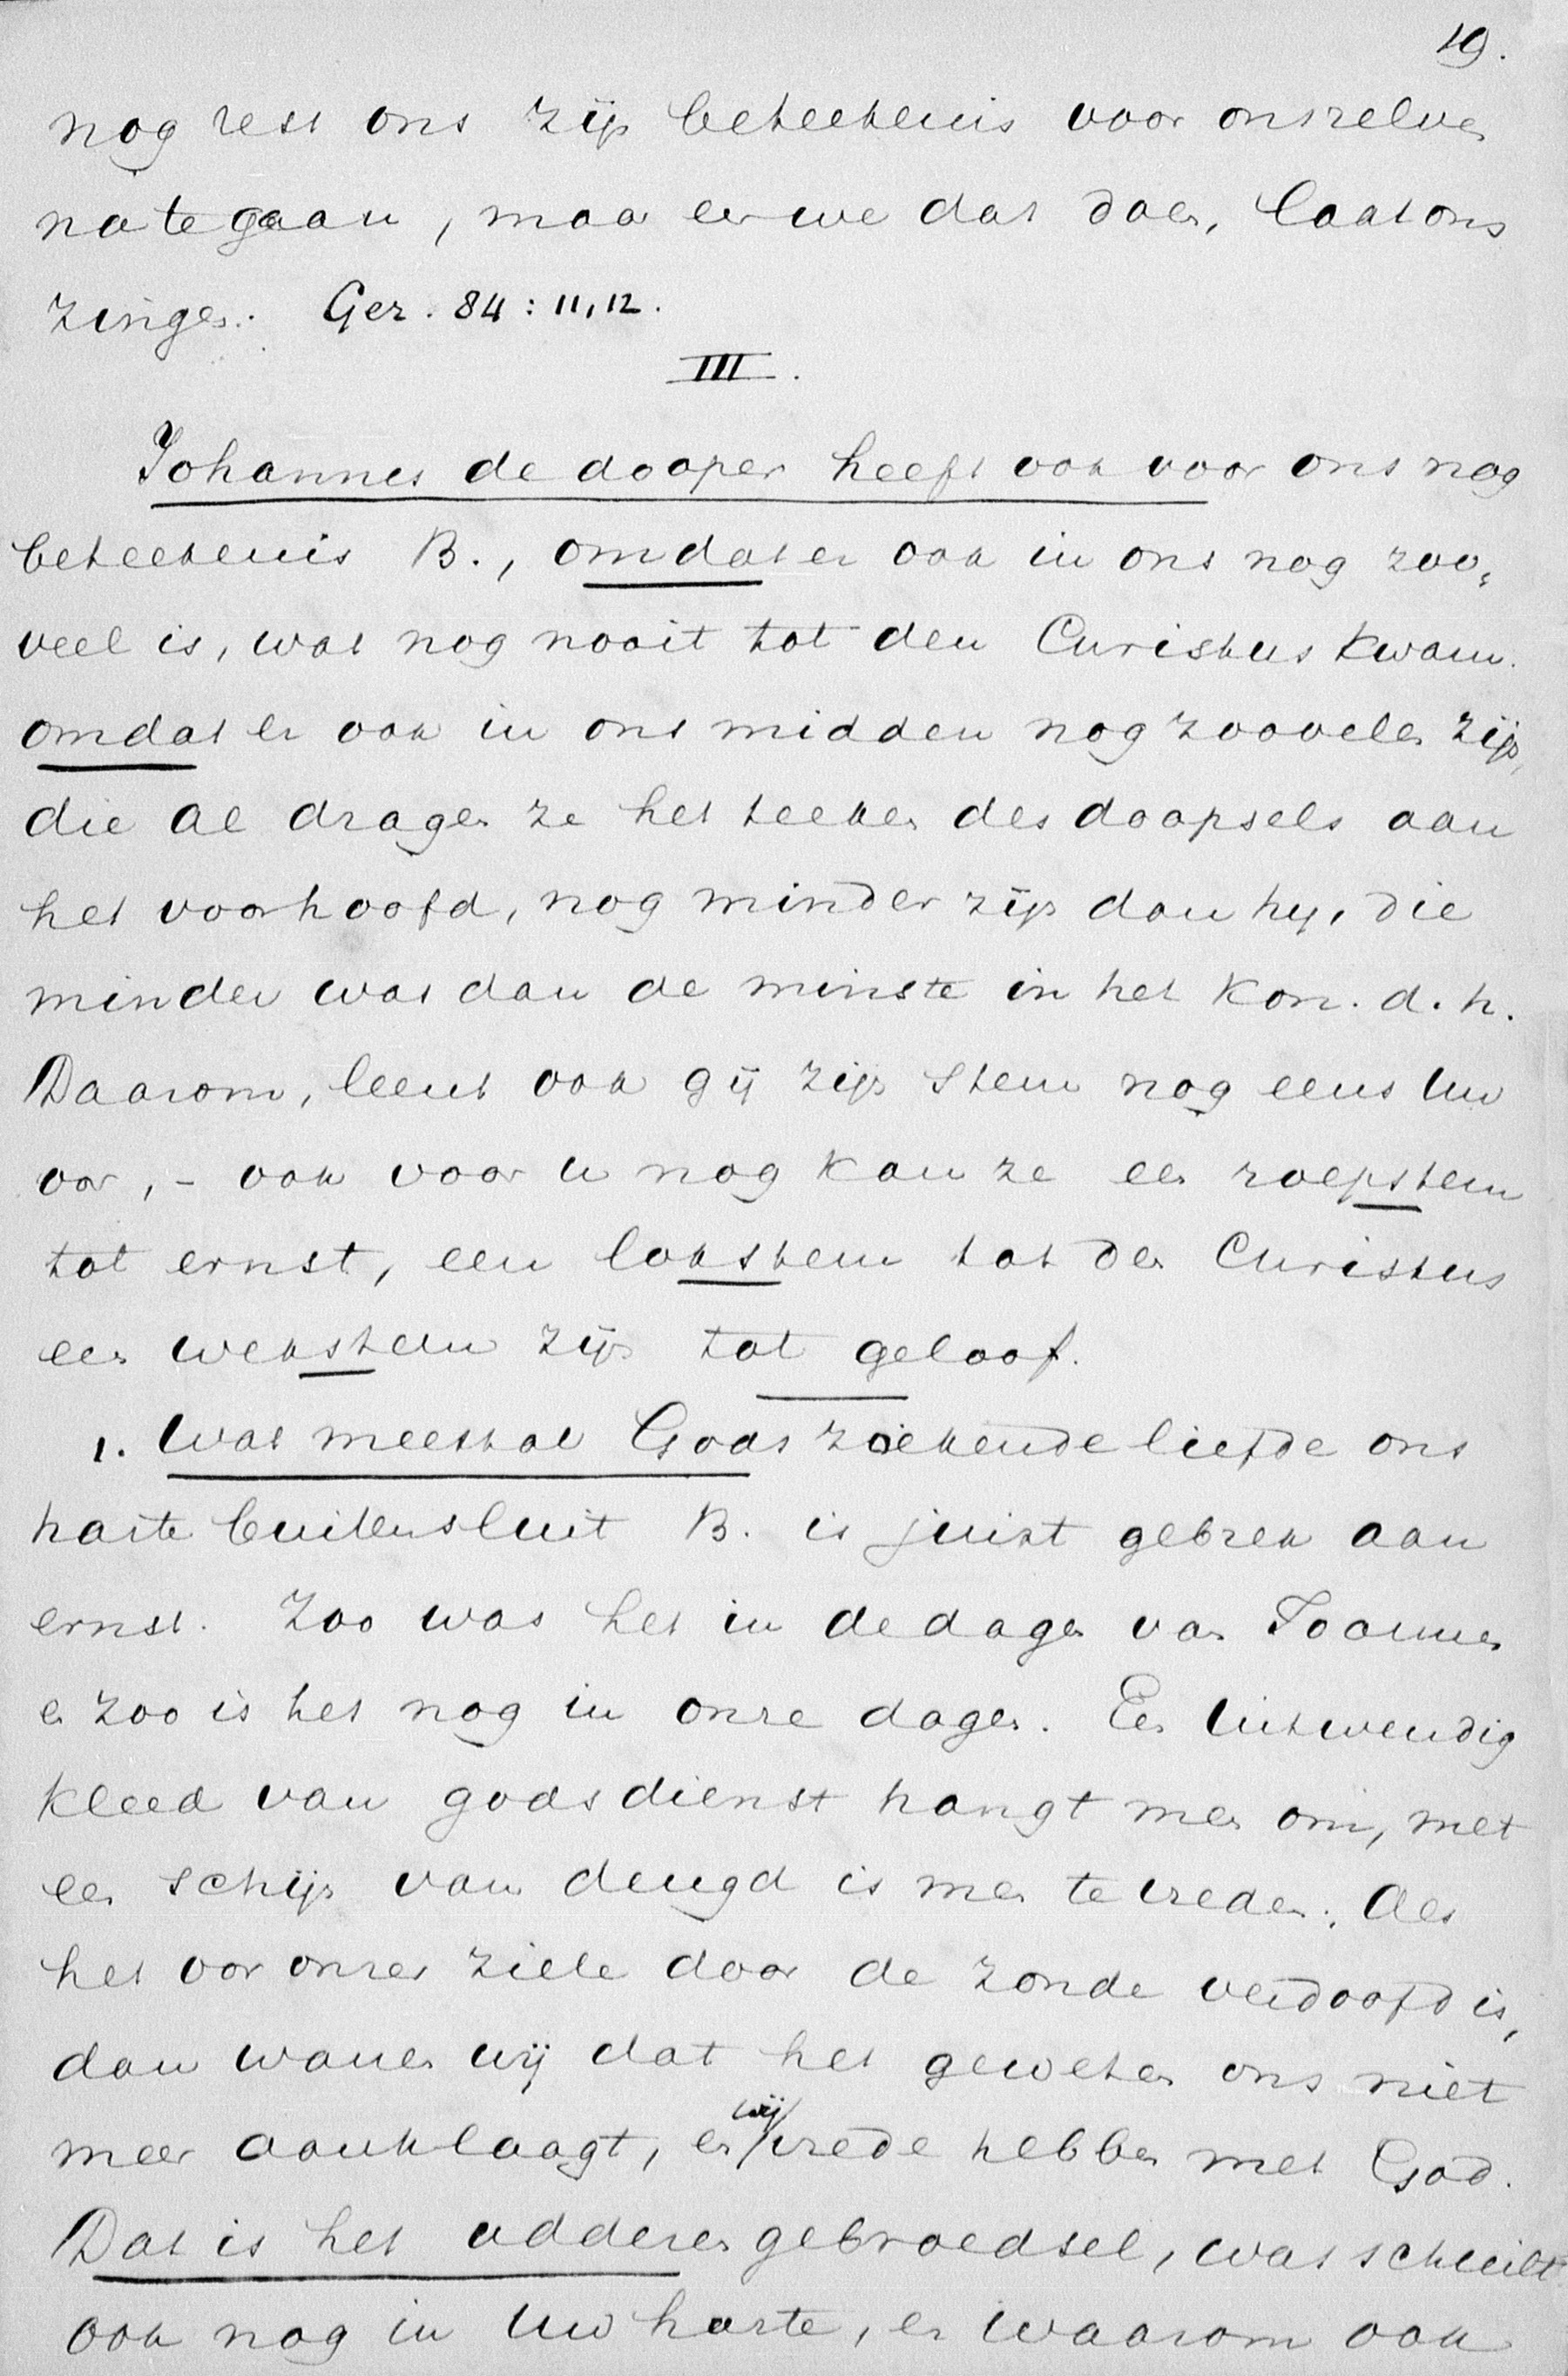 19.
nog rest ons zijn beteekenis voor onszelven
na te gaan, maar eer we dat doen, laat ons
zingen: Gez. 84 : 11, 12.
III.
Johannes de dooper heeft ook voor ons nog
beteekenis B., omdat er ook in ons nog zoo,
veel is, wat nog nooit tot den Christus kwam.
omdat er ook in ons midden nog zoovelen zijn,
die al dragen ze het teeken des doopsels aan
het voorhoofd, nog minder zijn dan hij, die
minder was dan de minste in het Kon. d. h.
Daarom, leent ook gij zijn stem nog eens uw
oor, - ook voor u nog kan ze een roepstem
tot ernst, een lokstem tot den Christus
een wekstem zijn tot geloof.
1. Wat meestal Gods zoekende liefde ons
harte buitensluit B. is juist gebrek aan
ernst. Zoo was het in de dagen van Joannes
en zoo is het nog in onze dagen. Een uitwendig
kleed van godsdienst hangt men om, met
een schijn van deugd is men tevreden. Als
het oor onzer ziele door de zonde verdoofd is,
dan wanen wij dat het geweten ons niet
meer aanklaagt, en wij vrede hebben met God.
Dat is het adderengebroedsel, wat schuilt
ook nog in uw harte, en waarom ook